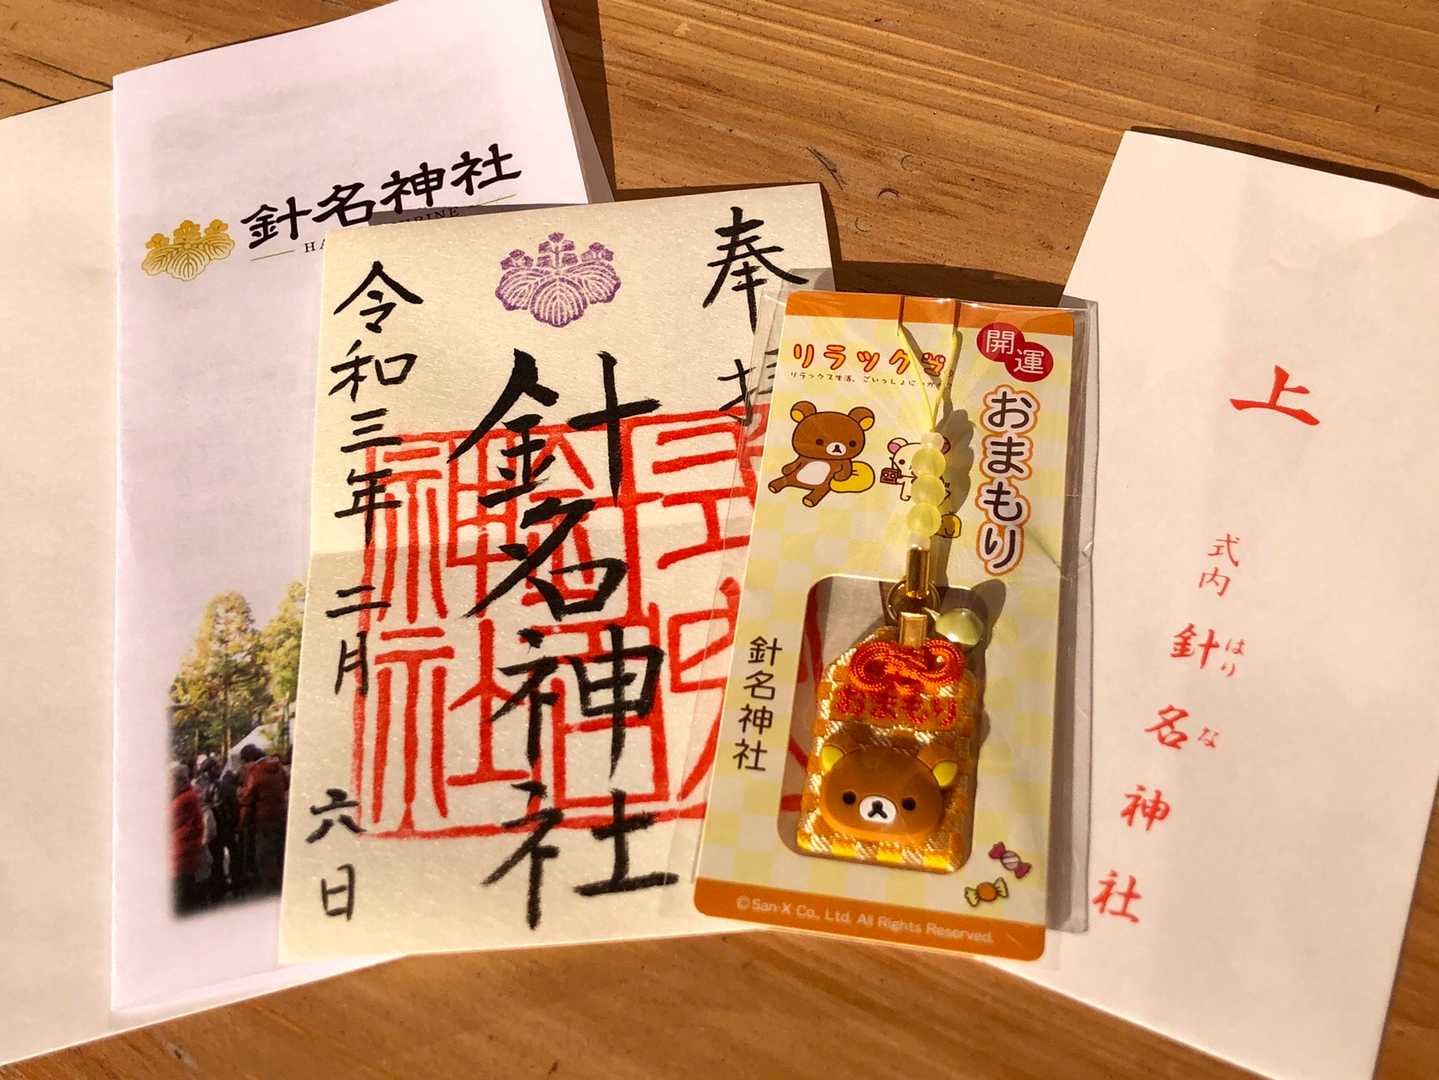 針名神社
奉拝
針名神社
令和三年二月六日
開運
おまもり
リラックマ
リラックス生活、ごいっしょに
針名神社
おまもり
©San-X Co., Ltd. All Rights Reserved.
上
式内針名神社
はりな